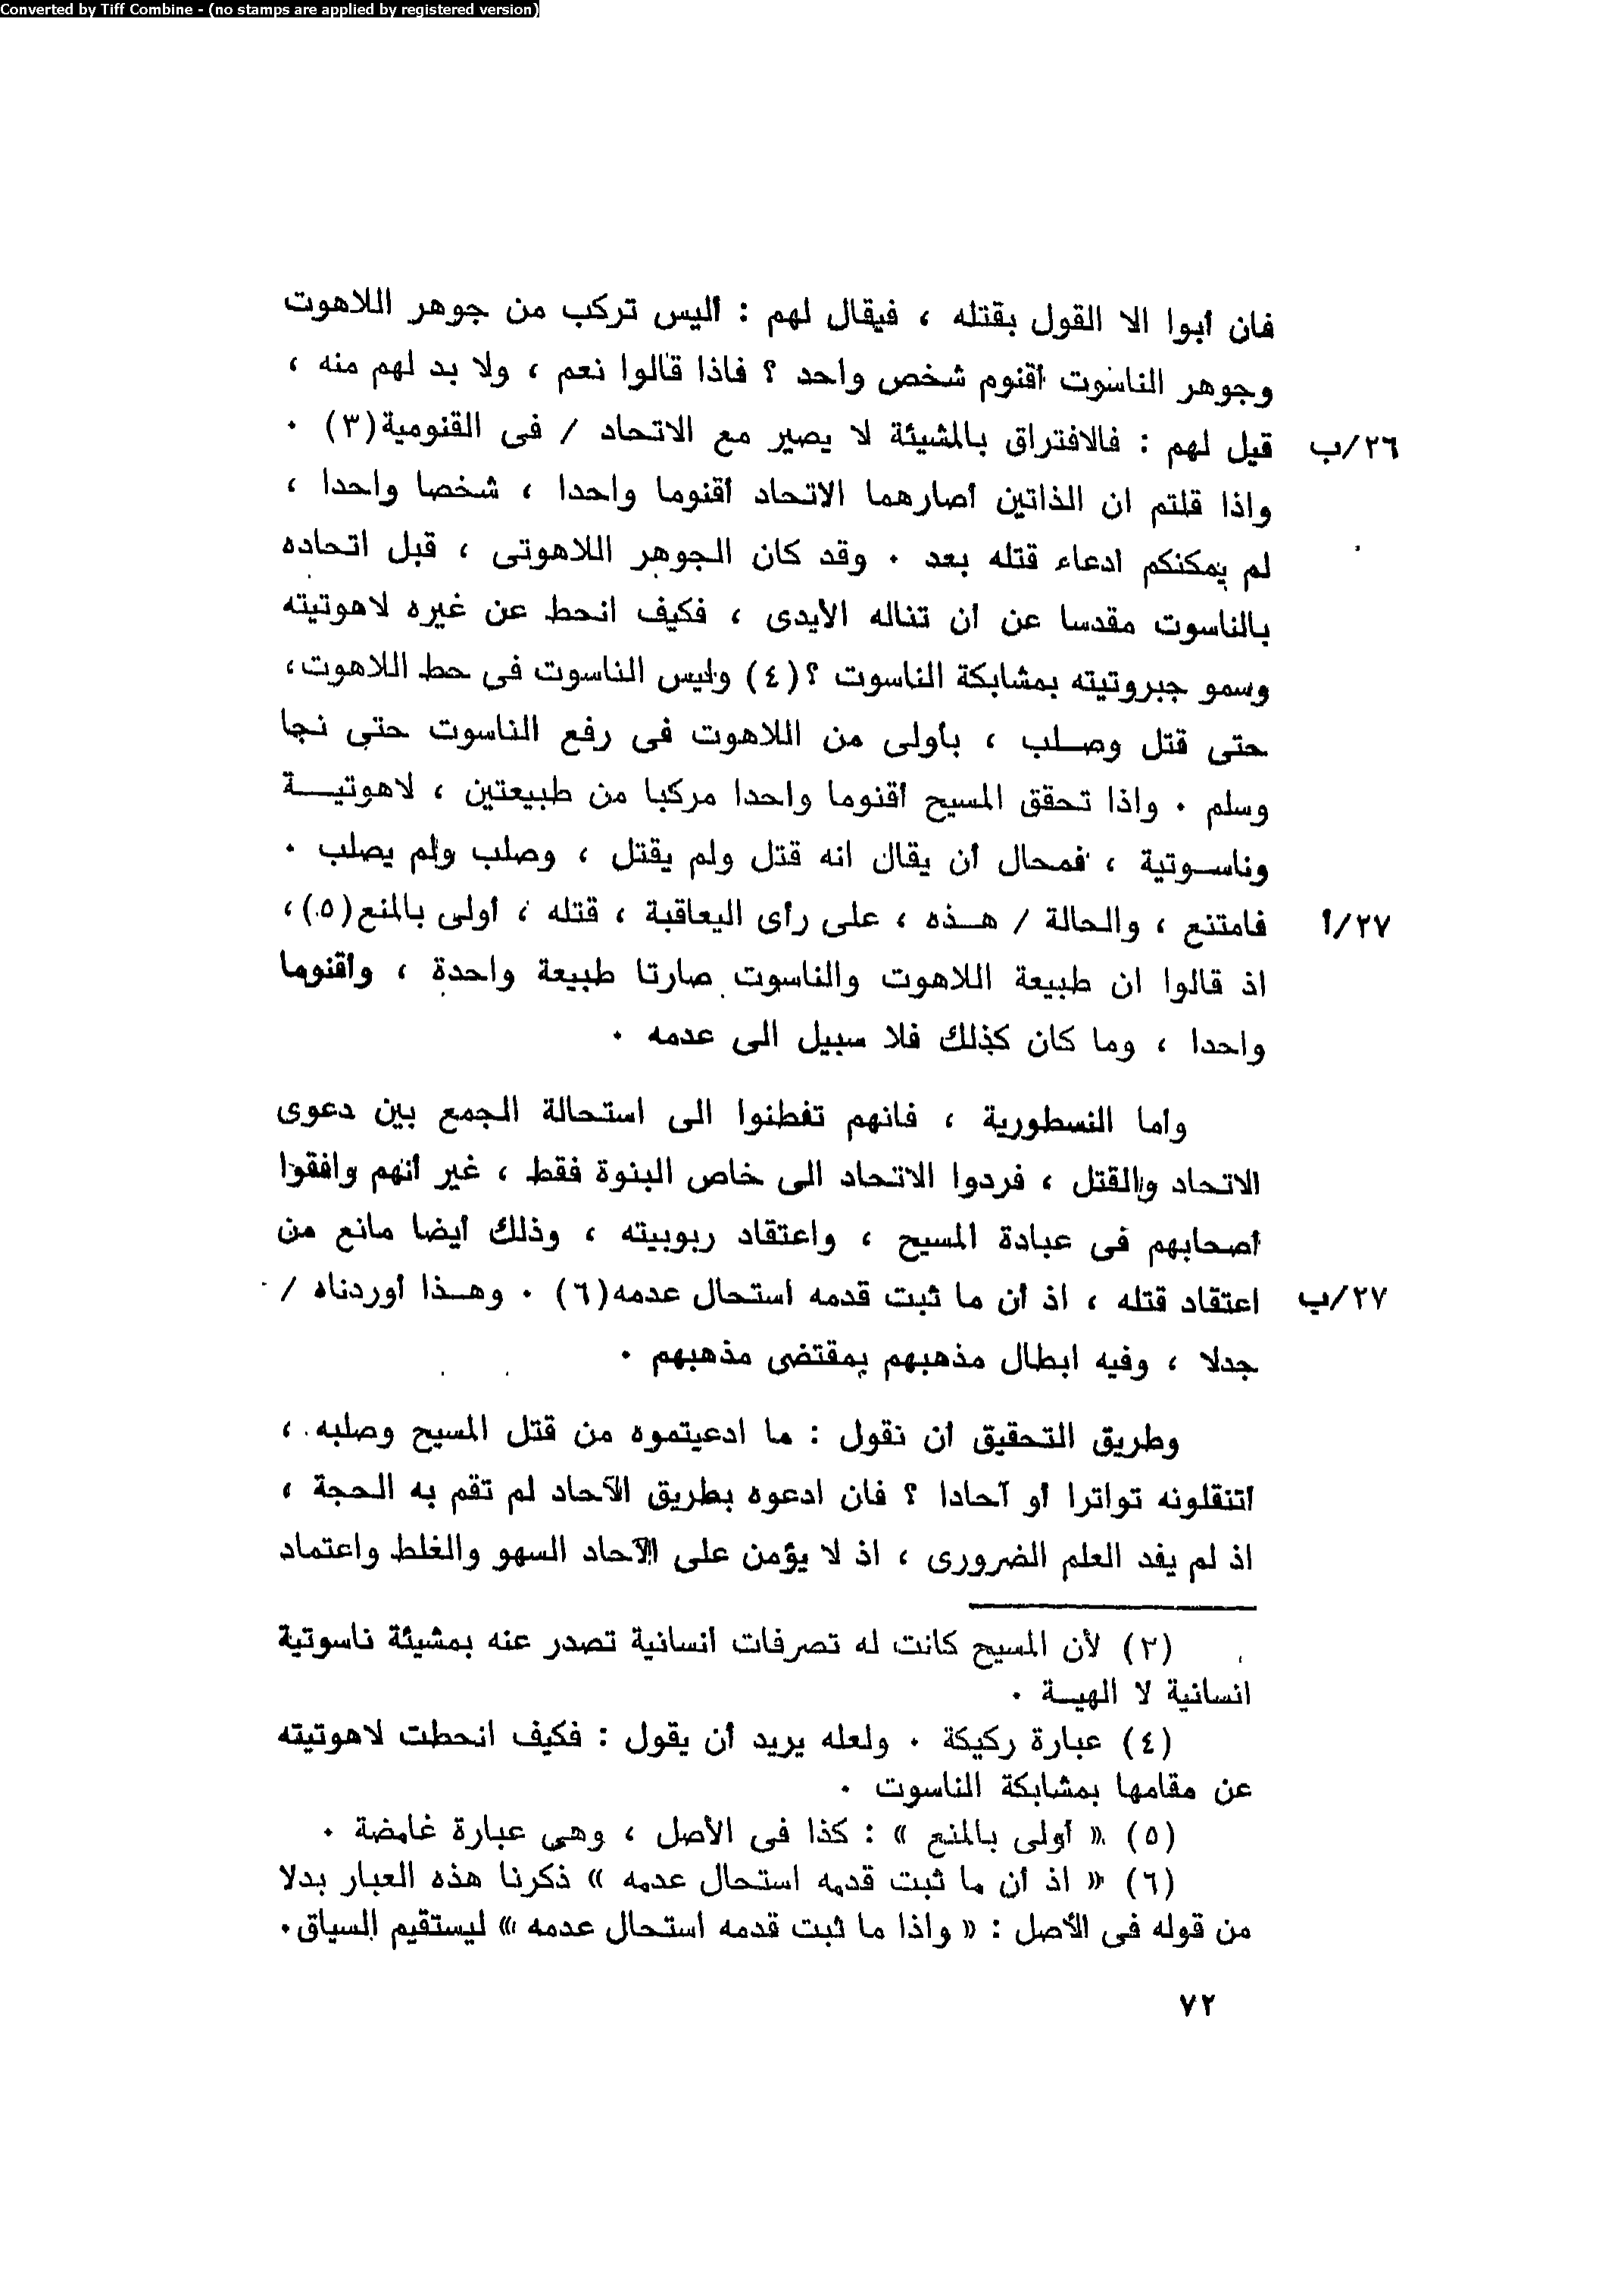 Converted by Tiff Combine - (no stamps are applied by registered version)
فان أبوا الا القول بقتله ، فيقال لهم : أليس تركب من جوهر اللاهوت
وجوهر الناسوت أقنوم شخص واحد ؟ فاذا قالوا نعم ، ولا بد لهم منه ،
٢٦/ب قيل لهم : فالافتراق بالمشيئة لا يصير مع الاتحاد / فى القنومية(٣) .
واذا قلتم ان الذاتين أصارهما الاتحاد أقنوما واحدا ، شخصا واحدا ،
لم يمكنكم ادعاء قتله بعد . وقد كان الجوهر اللاهوتى ، قبل اتحاده
بالناسوت مقدسا عن أن تناله الأيدى ، فكيف انحط عن غيره لاهوتيته
وسمو جبروتيته بمشابكة الناسوت ؟(٤) وليس الناسوت فى حط اللاهوت،
حتى قتل وصلب ، بأولى من اللاهوت فى رفع الناسوت حتى نجا
وسلم . واذا تحقق المسيح أقنوما واحدا مركبا من طبيعتين ، لاهوتية
وناسوتية ، فمحال أن يقال انه قتل ولم يقتل ، وصلب ولم يصلب .
٢٧/أ فامتنع ، والحالة / هذه ، على رأى اليعاقبة ، قتله ، أولى بالمنع(٥)،
اذ قالوا ان طبيعة اللاهوت والناسوت صارتا طبيعة واحدة ، وأقنوما
واحدا ، وما كان كذلك فلا سبيل الى عدمه .
وأما النسطورية ، فانهم تفطنوا الى استحالة الجمع بين دعوى
الاتحاد والقتل ، فردوا الاتحاد الى خاص البنوة فقط ، غير أنهم وافقوا
أصحابهم فى عبادة المسيح ، واعتقاد ربوبيته ، وذلك أيضا مانع من
٢٧/ب اعتقاد قتله ، اذ أن ما ثبت قدمه استحال عدمه(٦) . وهذا أوردناه /
جدلا ، وفيه ابطال مذهبهم بمقتضى مذهبهم .
وطريق التحقيق أن نقول : ما ادعيتموه من قتل المسيح وصلبه ،
أتنقلونه تواترا أو آحادا ؟ فان ادعوه بطريق الآحاد لم تقم به الحجة ،
اذ لم يفد العلم الضرورى ، اذ لا يؤمن على الآحاد السهو والغلط واعتماد
(٣) لأن المسيح كانت له تصرفات انسانية تصدر عنه بمشيئة ناسوتية
انسانية لا الهية .
(٤) عبارة ركيكة . ولعله يريد أن يقول : فكيف انحطت لاهوتيته
عن مقامها بمشابكة الناسوت .
(٥) « أولى بالمنع » : كذا فى الأصل ، وهى عبارة غامضة .
(٦) « اذ أن ما ثبت قدمه استحال عدمه » ذكرنا هذه العبار بدلا
من قوله فى الأصل : « واذا ما ثبت قدمه استحال عدمه » ليستقيم السياق.
٧٢